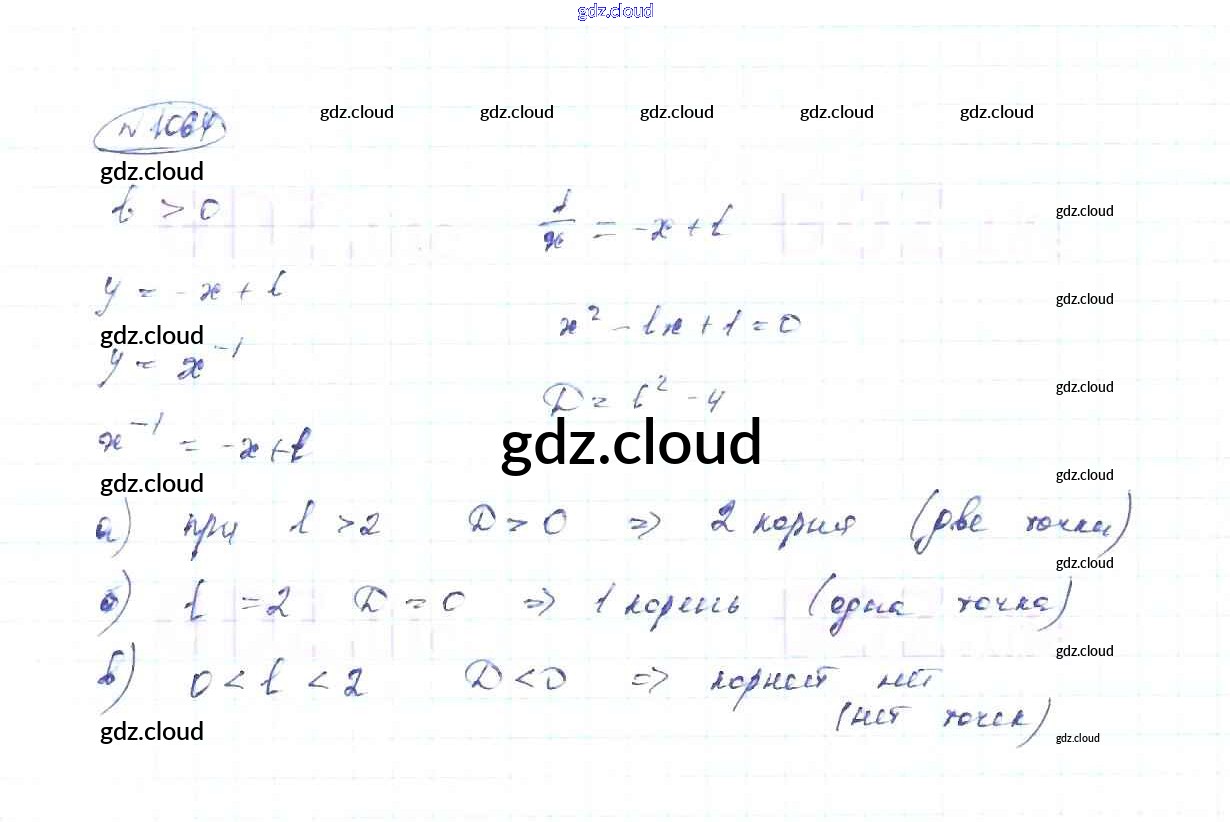 gdz.cloud
№ 1064
gdz.cloud gdz.cloud gdz.cloud gdz.cloud gdz.cloud
gdz.cloud
b > 0
1/x = -x + b
gdz.cloud
y = -x + b
gdz.cloud
x² - bx + 1 = 0
gdz.cloud
y = x⁻¹
D = b² - 4
gdz.cloud
x⁻¹ = -x + b
gdz.cloud
gdz.cloud
gdz.cloud
а) при b > 2 D > 0 => 2 корня (две точки)
gdz.cloud
б) b = 2 D = 0 => 1 корень (одна точка)
gdz.cloud
в) 0 < b < 2 D < 0 => корней нет
(нет точек)
gdz.cloud
gdz.cloud